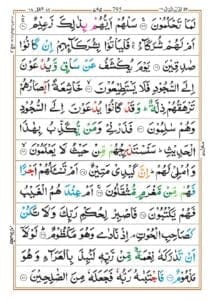 لَمَا تَحْكُمُوْنَ ۝ سَلْهُمْ اَيُّهُمْ بِذٰلِكَ زَعِيْمٌ ۝
اَمْ لَهُمْ شُرَكَآءُ فَلْيَاْتُوْا بِشُرَكَآئِهِمْ اِنْ كَانُوْا
صٰدِقِيْنَ ۝ يَوْمَ يُكْشَفُ عَنْ سَاقٍ وَّيُدْعَوْنَ
اِلَى السُّجُوْدِ فَلَا يَسْتَطِيْعُوْنَ ۝ خَاشِعَةً اَبْصَارُهُمْ
تَرْهَقُهُمْ ذِلَّةٌ وَقَدْ كَانُوْا يُدْعَوْنَ اِلَى السُّجُوْدِ
وَهُمْ سٰلِمُوْنَ ۝ فَذَرْنِيْ وَمَنْ يُّكَذِّبُ بِهٰذَا
الْحَدِيْثِ سَنَسْتَدْرِجُهُمْ مِّنْ حَيْثُ لَا يَعْلَمُوْنَ ۝
وَاُمْلِيْ لَهُمْ اِنَّ كَيْدِيْ مَتِيْنٌ ۝ اَمْ تَسْئَلُهُمْ اَجْرًا
فَهُمْ مِّنْ مَّغْرَمٍ مُّثْقَلُوْنَ ۝ اَمْ عِنْدَهُمُ الْغَيْبُ
فَهُمْ يَكْتُبُوْنَ ۝ فَاصْبِرْ لِحُكْمِ رَبِّكَ وَلَا تَكُنْ
كَصَاحِبِ الْحُوْتِ اِذْ نَادٰى وَهُوَ مَكْظُوْمٌ ۝ لَوْلَا
اَنْ تَدٰرَكَهٗ نِعْمَةٌ مِّنْ رَّبِّهٖ لَنُبِذَ بِالْعَرَآءِ وَهُوَ
مَذْمُوْمٌ ۝ فَاجْتَبٰهُ رَبُّهٗ فَجَعَلَهٗ مِنَ الصّٰلِحِيْنَ ۝